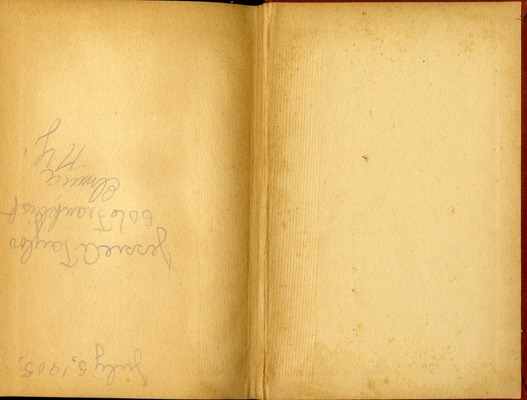 July 5, 1905.
Jessie A. Taylor
606 Franklin St
Elmira
N Y